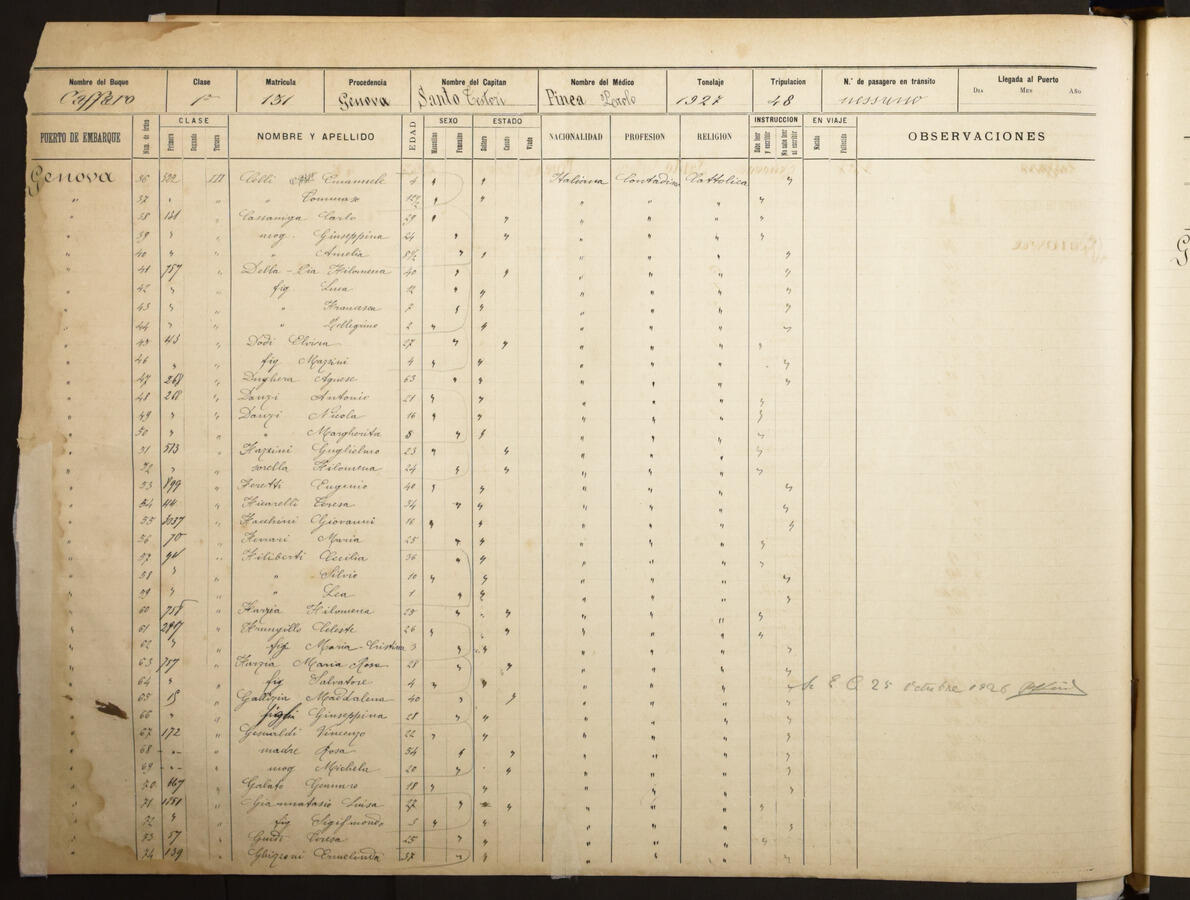 Nombre del Buque Clase Matrícula Procedencia Nombre del Capitan Nombre del Médico Tonelaje Tripulacion N.° de pasagero en tránsito Llegada al Puerto
Caffaro 1ª 131 Genova Santo Testori Pinea Paolo 1927 48 nessuno Dia Mes Año
PUERTO DE EMBARQUE Núm. de órden CLASE Primera Segunda Tercera NOMBRE Y APELLIDO EDAD SEXO Masculino Femenino ESTADO Soltero Casado Viudo NACIONALIDAD PROFESION RELIGION INSTRUCCION Sabe leer y escribir No sabe leer ni escribir EN VIAJE Nacido Fallecido OBSERVACIONES
Genova 36 502 III Celli Emanuele 4 " " Italiana Contadino Cattolica "
" 37 " " " Tommaso " " " " " "
" 38 " Cassaniga Carlo 29 " " " " " "
" 39 " " mog. Giuseppina 24 " " " " " "
" 40 " " " Amelia " " " " " "
" 41 757 " Della-Pia Filomena 40 " " " " " "
" 42 " " fig Luca 12 " " " " " "
" 43 " " " Francesca 7 " " " " " "
" 44 " " " Pellegrino 2 " " " " " "
" 45 " Dodi Elvira 27 " " " " " "
" 46 " " fig Mazzini 4 " " " " " "
" 47 268 " Dughera Agnese 63 " " " " " "
" 48 268 " Danzi Antonio 21 " " " " " "
" 49 " " Danzi Nicola 16 " " " " " "
" 50 " " " Margherita 8 " " " " " "
" 51 513 " Fazzini Guglielmo 23 " " " " " "
" 52 " " sorella Filomena 24 " " " " " "
" 53 899 " Feretti Eugenio 40 " " " " " "
" 54 44 " Ficarelli Teresa 34 " " " " " "
" 55 " Facchini Giovanni 18 " " " " " "
" 56 70 " Ferrari Maria 25 " " " " " "
" 57 94 " Filiberti Cecilia 36 " " " " "
" 58 " " " Silvio 10 " " " " " "
" 59 " " " Lea 1 " " " " " "
" 60 758 " Farzia Filomena 25 " " " " " "
" 61 " Frungillo Celeste 26 " " " " " "
" 62 " " fig Maria-Cristina 3 " " " " " "
" 63 757 " Farzia Maria Rosa 28 " " " " " "
" 64 " " fig Salvatore 4 " " " " " " 25 Octubre 1926
" 65 15 " Gallizia Maddalena 40 " " " " " "
" 66 " " Giuseppina 28 " " " " " "
" 67 172 " Gesualdi Vincenzo 22 " " " " " "
" 68 " " madre Rosa 54 " " " " " "
" 69 " " mog Michela 20 " " " " " "
" 70 667 " Galato Gennaro 18 " " " " " "
" 71 1151 " Giannatasio Luisa 27 " " " " " "
" 72 " " fig Sigismondo 3 " " " " "
" 73 57 " Guidi Teresa 25 " " " " " "
" 74 139 " Ghizzoni Ermelinda 37 " " " " " "